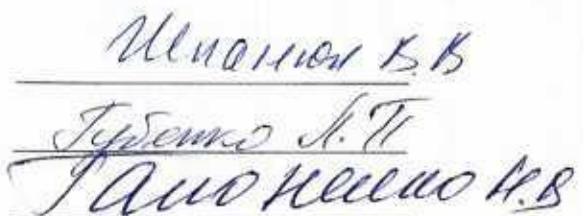 Шпанюк В.В
Губенко Л.П
Гапоненко Н.В